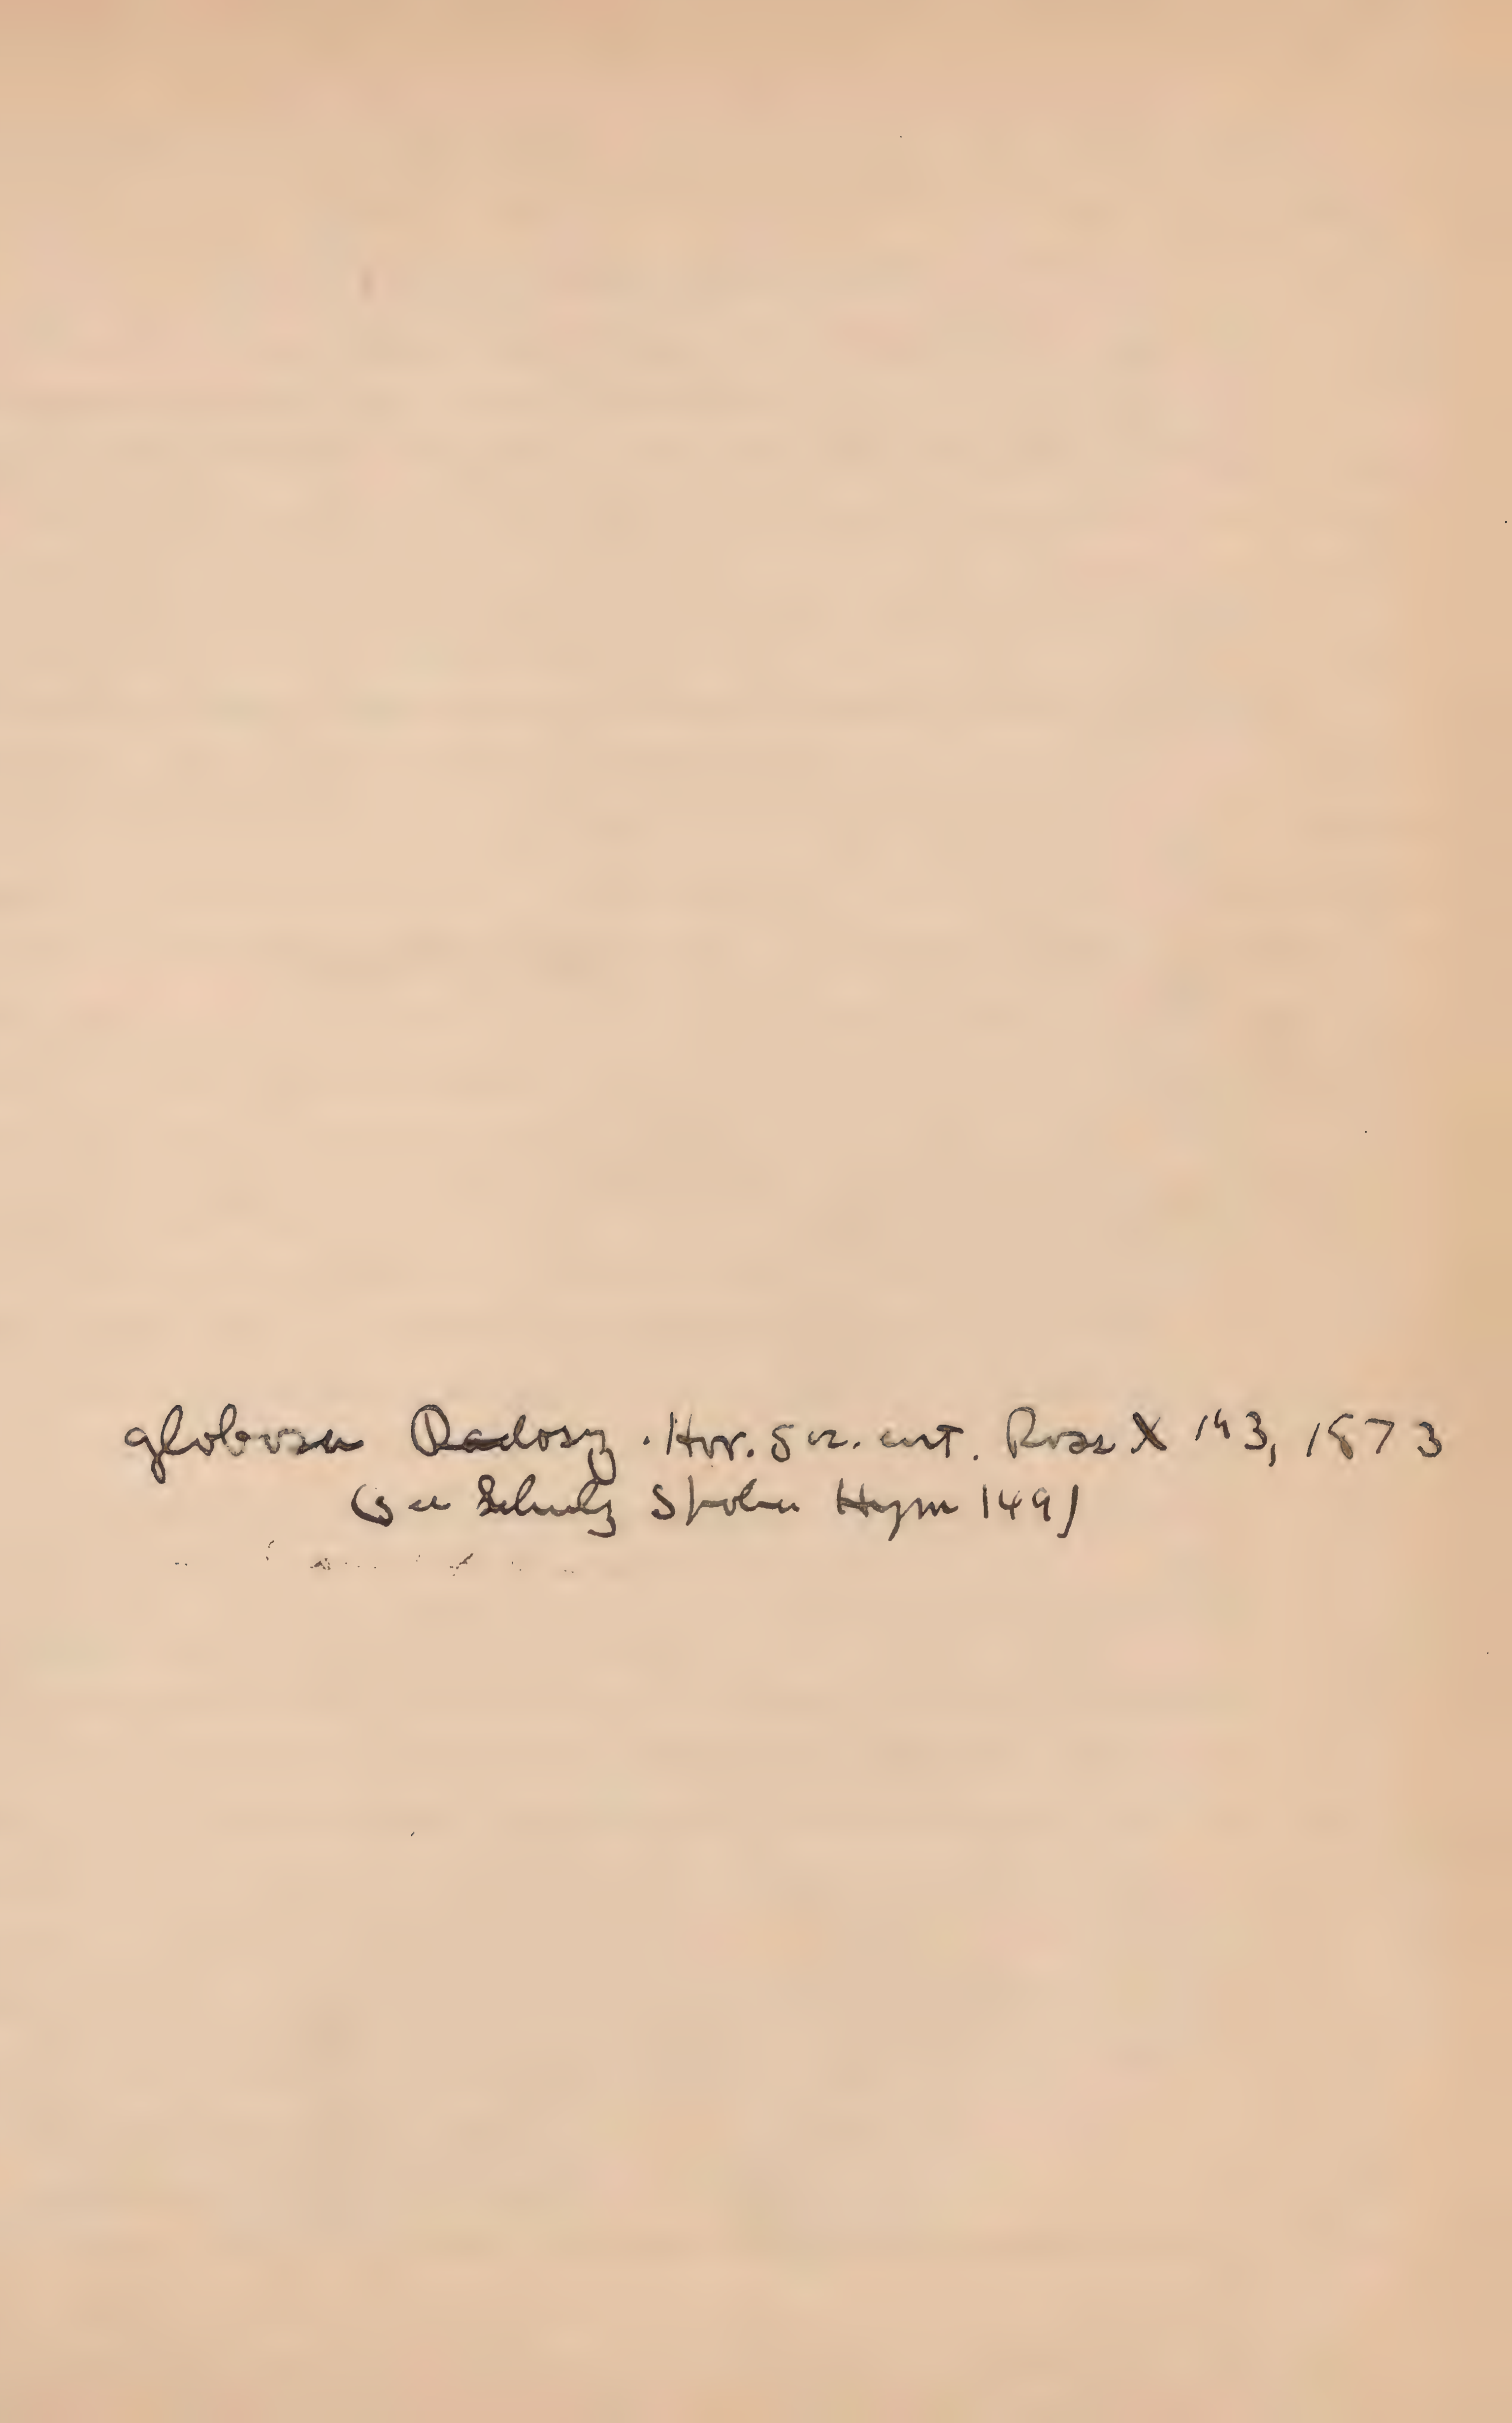 globosa Radosz. Hor. Soc. ent. Ross X 193, 1873
(see Schulz Spolia Hym 149)